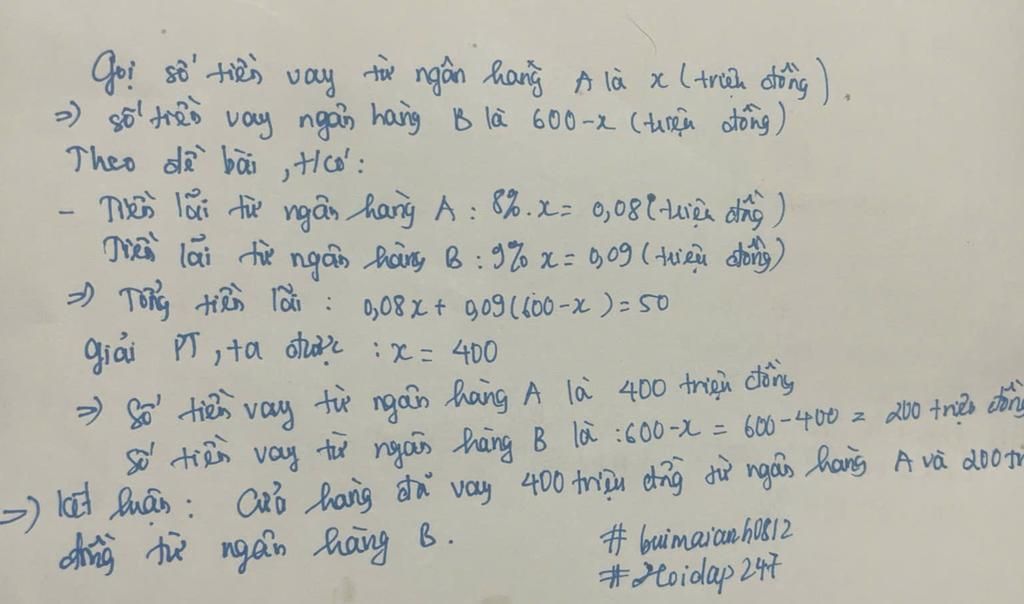 Gọi số tiền vay từ ngân hàng A là x (triệu đồng).
=> số tiền vay ngân hàng B là 600-x (triệu đồng)
Theo đề bài, t/có:
- Tiền lãi từ ngân hàng A : 8%.x = 0,08 (triệu đồng)
Tiền lãi từ ngân hàng B : 9% x = 0,09 (triệu đồng)
=> Tổng tiền lãi : 0,08x + 0,09(600-x) = 50
Giải PT, ta được : x = 400
=> Số tiền vay từ ngân hàng A là 400 triệu đồng
Số tiền vay từ ngân hàng B là : 600-x = 600-400 = 200 triệu đồng
=> Kết luận : Cửa hàng đã vay 400 triệu đồng từ ngân hàng A và 200 tr
đồng từ ngân hàng B.
# buimaianh0812
# Hoidap247